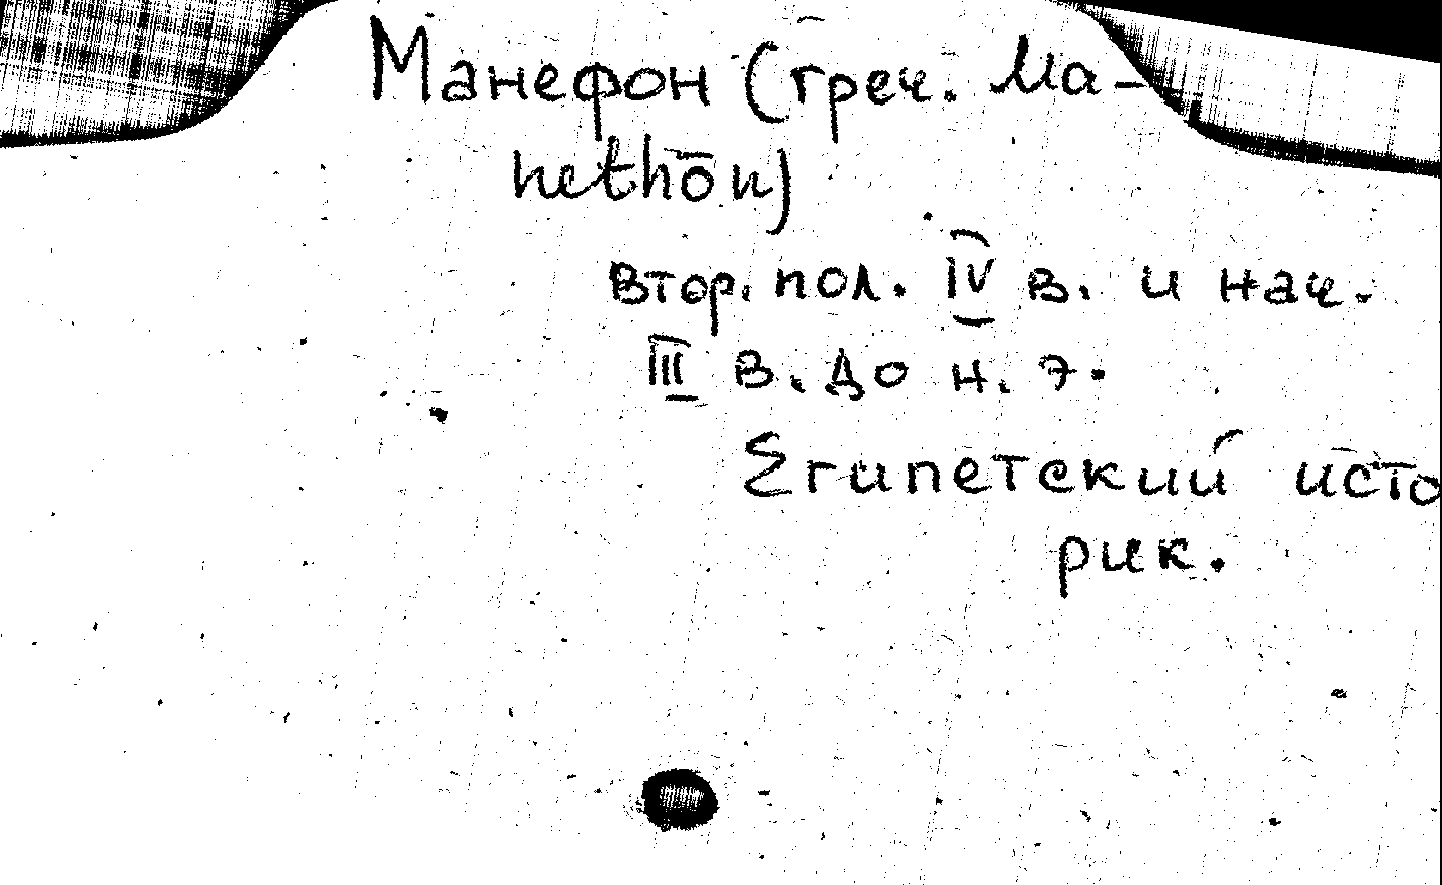 Манефон (греч. Ma-
nethōn)
втор. пол. IV в. и нач.
III в. до н. э.
Египетский исто
рик.